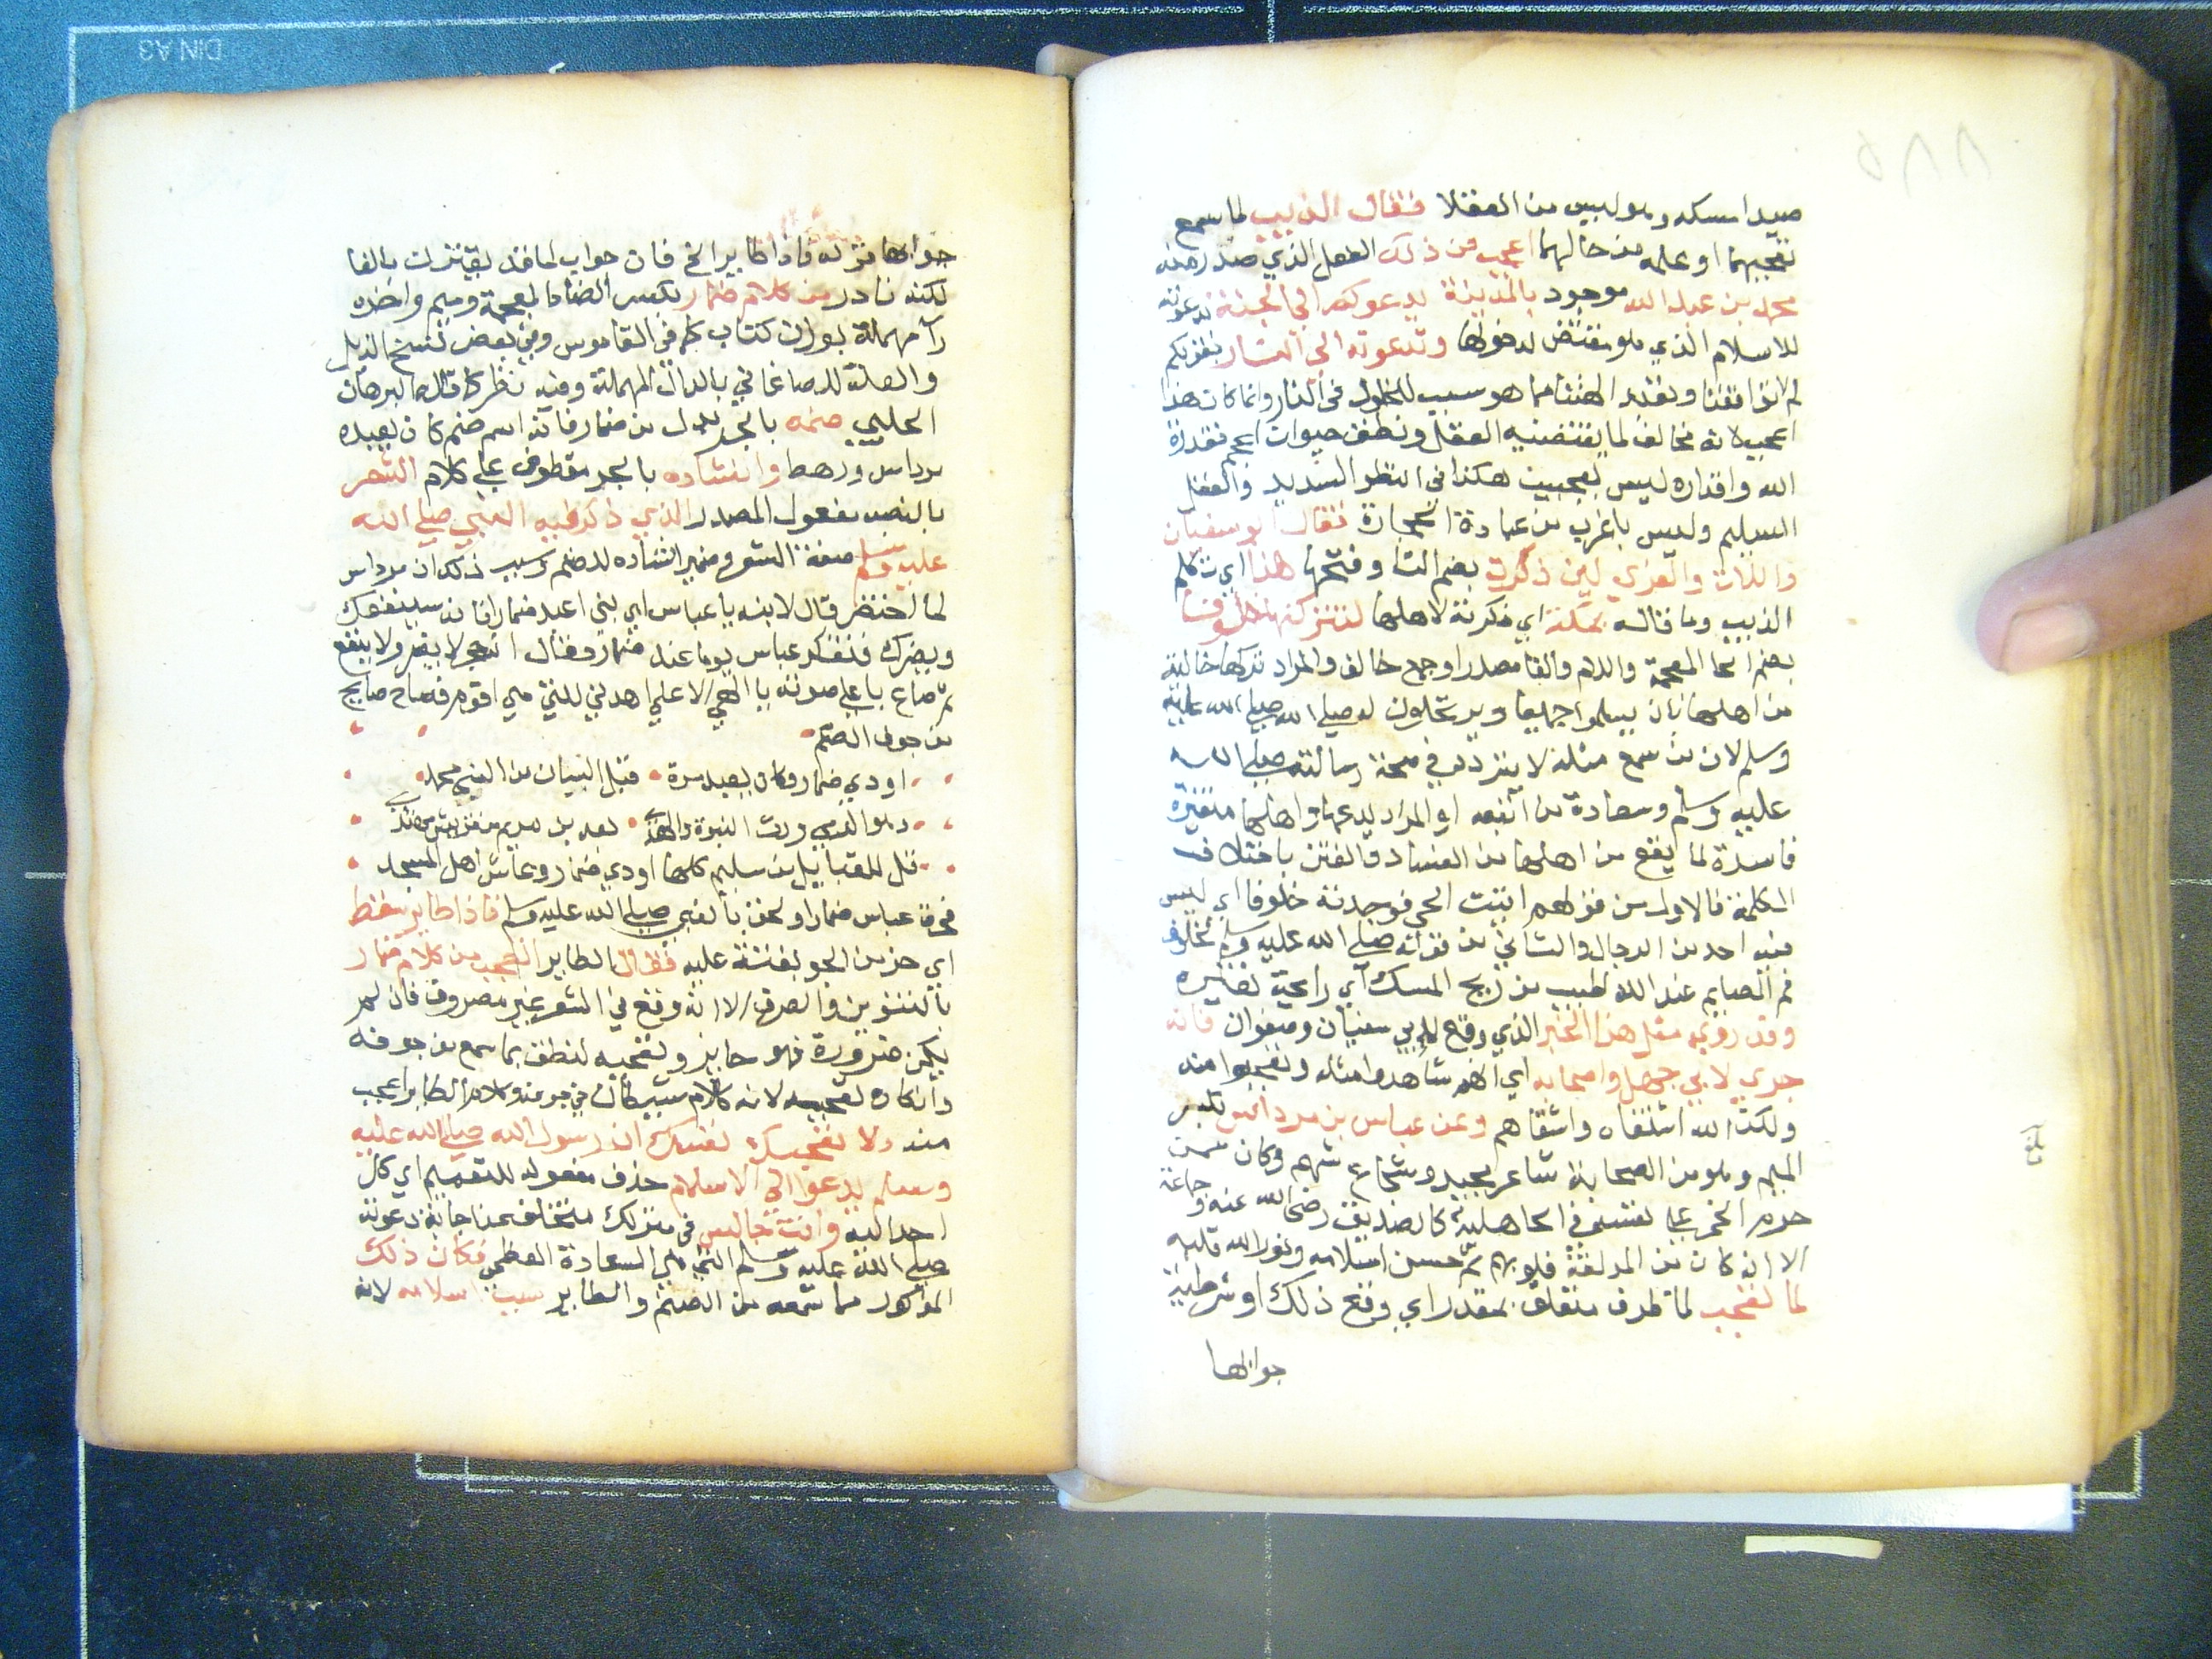 صيدا مسكه وهو ليس من العقلا فقال الذيب لما سمع
تعجبهما او علمه من حالهما اعجب من ذلك الفعل الذي صدر منه
محمد بن عبد الله موجود بالمدينة يدعوكم الى الجنة بدعوته
للاسلام الذي هو مقتض لدخولها وتدعونه الى النار بقولكم
لم لا توافقنا وتعبد الهتنا مما هو سبب للخلود في النار وانما كان هذا
اعجب لانه مخالف لما يقتضيه العقل ونطق حيوان اعجم بقدرة
الله واقداره ليس بعجيب هكذا في النظر السديد والعقل
السليم وليس باغرب من عبادة الحجارة فقال ابو سفيان
واللات والعزى لين ذكرت بضم التا وفتحها هذا اي تكلم
الذيب وما قاله بمكة اي ذكرته لاهلها لتتركنها خلوفا
بضم الخا المعجمة واللام والفا مصدر او جمع خالف والمراد تركها خالية
من اهلها بان يسلموا جميعا ويرتحلون له صلى الله صلى الله عليه
وسلم لان من سمع مثله لا يتردد في صحة رسالته صلى الله
عليه وسلم وسعادة من اتبعه او المراد يدعها واهلها متغيرة
فاسدة لما يقع من اهلها من الفساد والفتن باختلاف
الكلمة فالاول من قولهم اتيت الحي فوجدته خلوفا اي ليس
فيه احد من الرجال والثاني من قوله صلى الله عليه وسلم لخلوف
فم الصايم عند الله اطيب من ريح المسك اي رايحة تغيره
وقد روي مثل هذا الخبر الذي وقع لابي سفيان وصفوان فانه
جرى لابي جهل واصحابه اي انهم شاهدوا مثله وتعجبوا منه
ولكن الله اشقاه واشقاهم وعن عباس بن مرداس بكسر
الميم وهو من الصحابة شاعر مجيد وشجاع شهم وكان ممن
حرم الخمر على نفسه في الجاهلية كالصديق رضي الله عنه وجماعة
الا انه كان من المولفة قلوبهم ثم حسن اسلامه ونور الله قلبه
لما تعجب لما ظرف متعلق بمقدر اي وقع ذلك او شرطية
جوابها
جوابها قوله فاذا طاير الخ فان جواب لما قد يقترن بالفا
لكنه نادر من كلام ضمار بكسر الضاد المعجمة وميم واخره
را مهملة بوزن كتاب كما في القاموس وفي بعض نسخ الذيل
والصلة للصاغاني بالدال المهملة وفيه نظر كما قاله البرهان
الحلبي صنمه بالجر بدل من ضمار فانه اسم صنم كان يعبده
مرداس ورهط وانشاده بالجر معطوف على كلام الشعر
بالنصب مفعول المصدر الذي ذكر فيه النبي صلى الله
عليه وسلم صفة الشعر وضمير انشاده للصنم وسبب ذلك ان مرداس
لما احتضر قال لابنه يا عباس اي بني اعبد ضمارا فانه سينفعك
ويضرك فتفكر عباس يوما عند ضمار وقال انه حجر لا يضر ولا ينفع
ثم صاح باعلى صوته يا الهي الاعلى اهدني للتي هي اقوم فصاح صايح
من جوف الصنم
اودى ضمار وكان يعبد مرة قبل البيان من النبي محمد
وهو الذي ورث النبوة والهدى بعد بن مريم من قريش مهتدي
قل للقبايل من سليم كلها اودى ضمار وعاش اهل المسجد
فحرق عباس ضمارا ولحق بالنبي صلى الله عليه وسلم فاذا طاير سقط
اي خر من الجو بغتة عليه فقال الطاير اتعجب من كلام ضمار
بالتنوين والصرف الا انه وقع في الشعر غير مصروف فان لم
يكن ضرورة فهو جايز وتعجبه لنطق بما سمع من جوفه
وانكاره تعجبه لانه كلام شيطان في جوفه وكلام الطاير اعجب
منه ولا تعجب من نفسك ان رسول الله صلى الله عليه
وسلم يدعوا الى الاسلام حذف مفعوله للتعميم اي كل
احد اليه وانت جالس في منزلك متخلف عن اجابة دعوته
صلى الله عليه وسلم التي هي السعادة العظمى فكان ذلك
المذكور مما سمعه من الصنم والطاير سبب اسلامه لانه